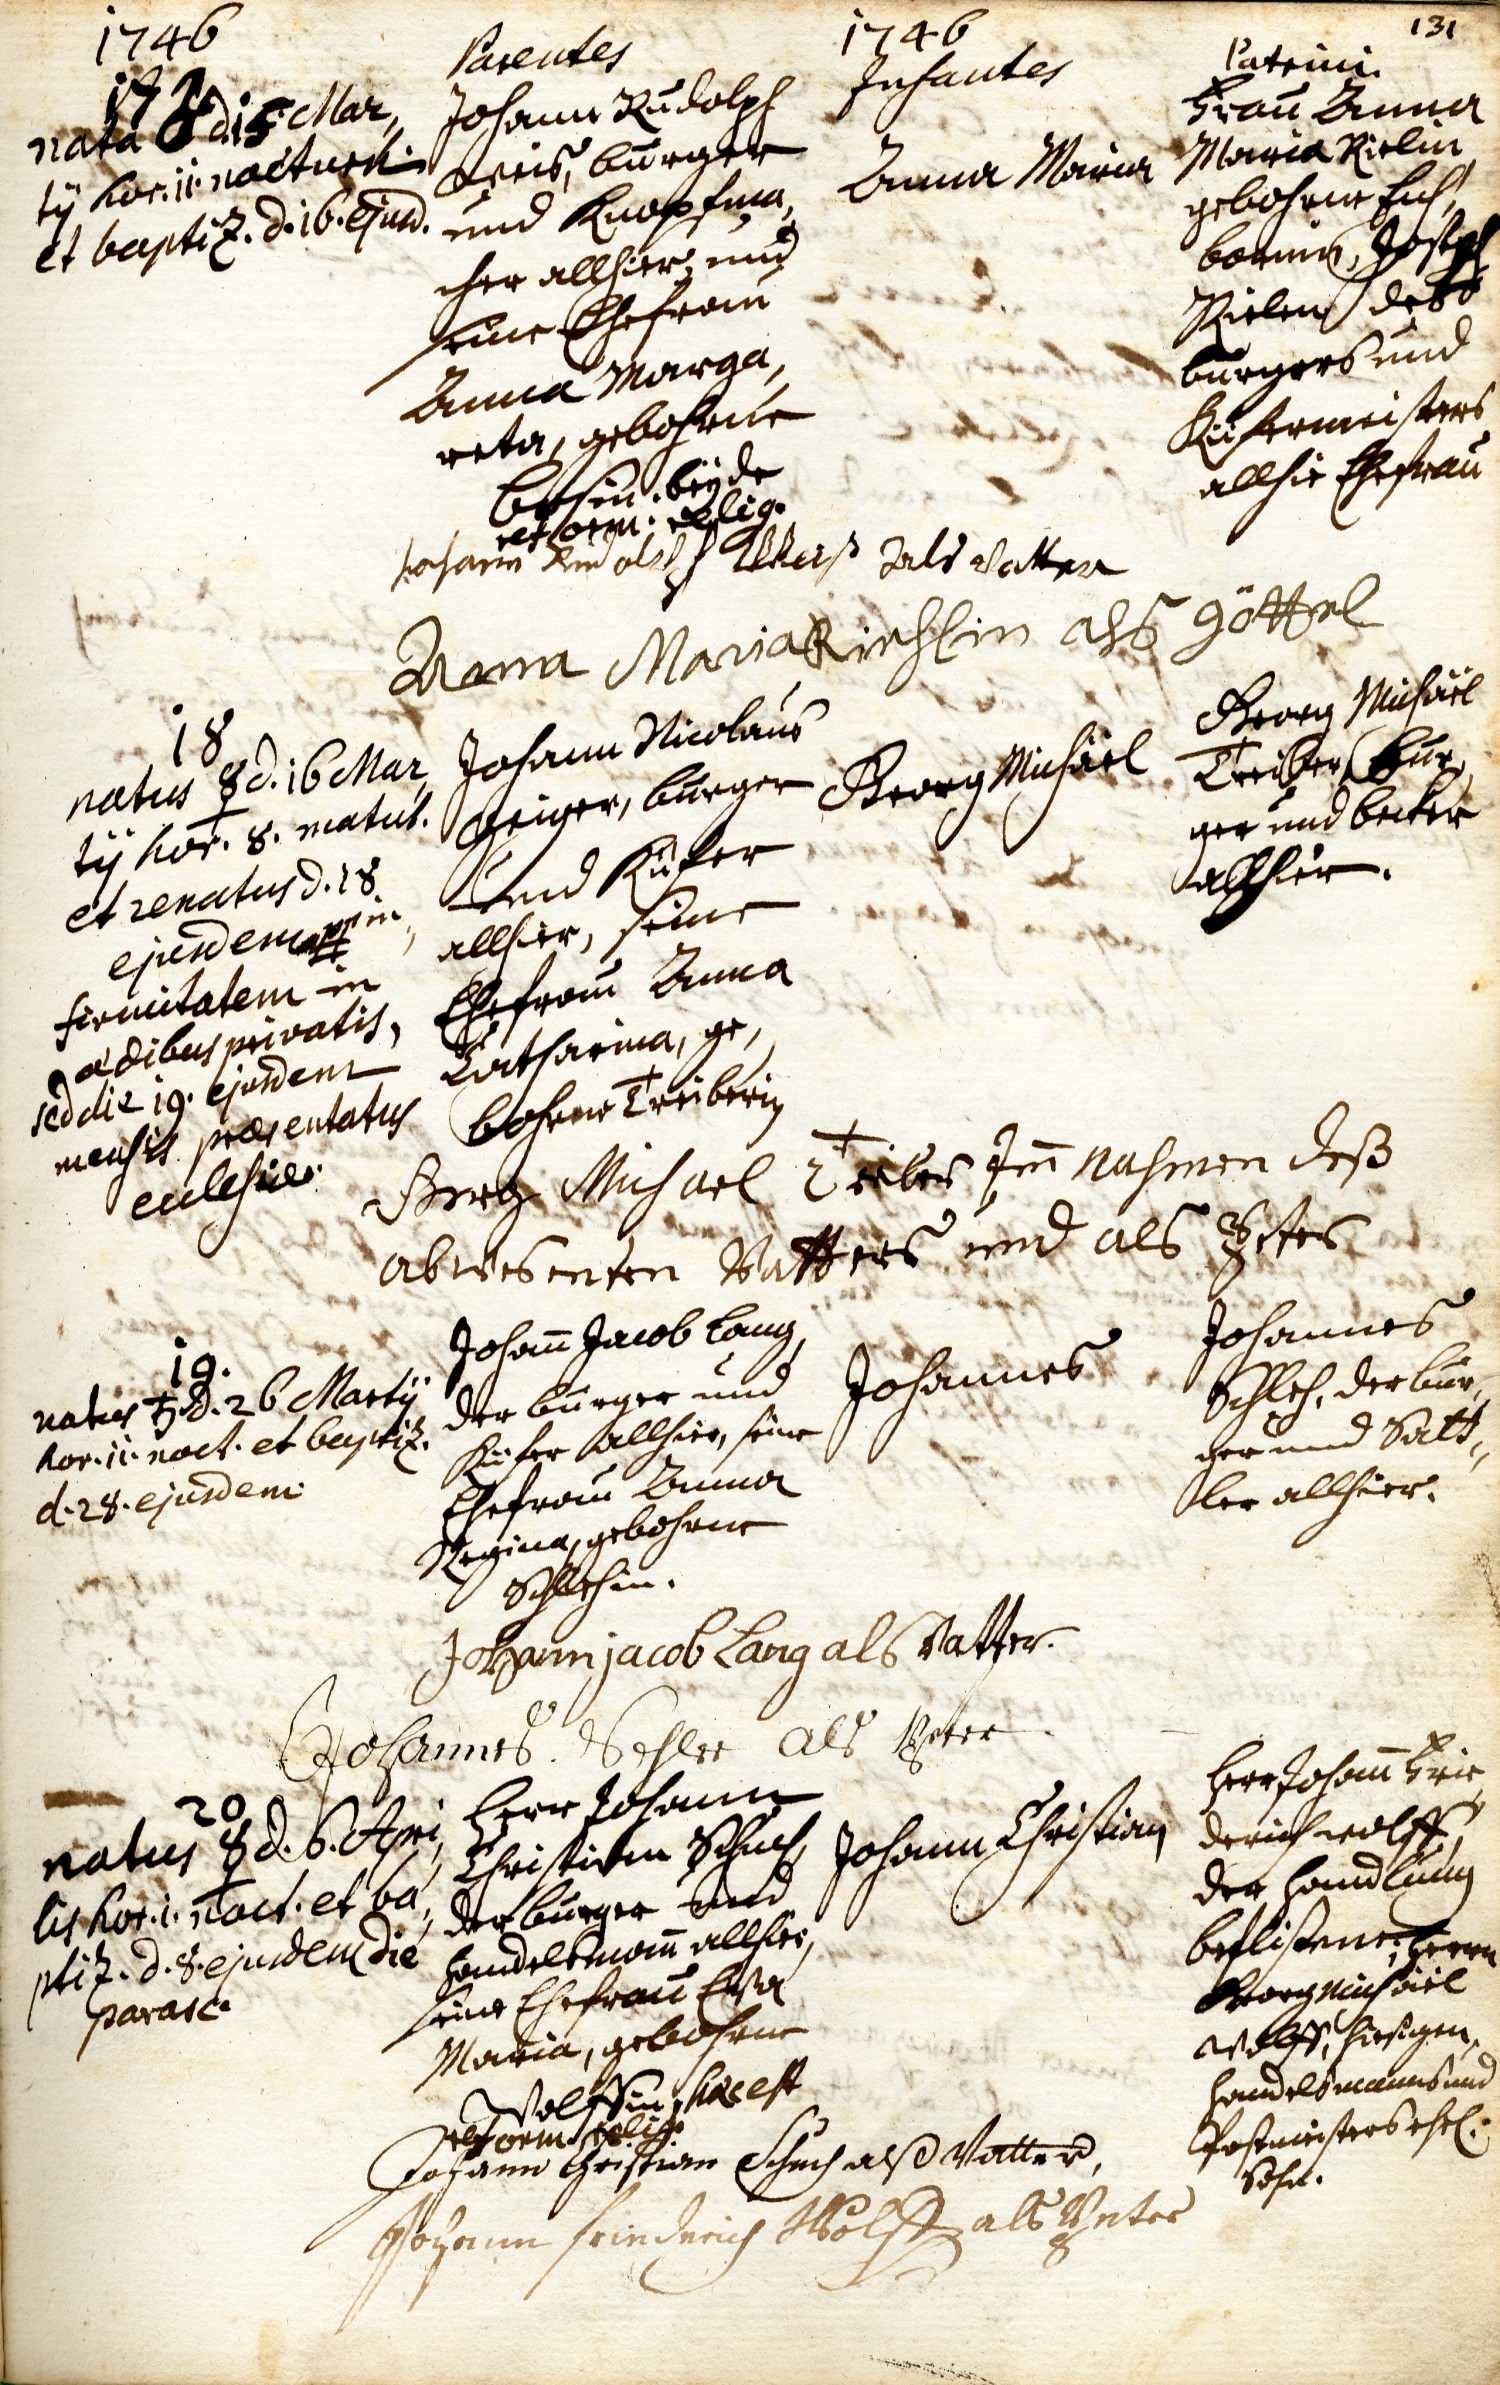 131
1746
Parentes
1746
Infantes
Patrini.
17
nata d. 15 Mar,
tÿ hor. 11. nocturn.
et baptiz. d. 16. ejusd.
Johann Rudolph
Weis, burger
und Knopfma,
cher allhier, und
seine Ehefrau
Anna Marga,
reta, gebohrne
beÿde
reform. relig.
Anna Maria
Frau Anna
Maria Rielin
gebohrne Eich,
bornin, Joseph
Rielen des
burgers und
Küfermeisters
allhie Ehefrau
Johann Rudolph Weiß als vatter
Anna Maria Riehlin als göttel
18
natus ☿ d. 16 Mar,
tÿ hor. 8. matut.
et renatus d. 18
ejusdem in,
firmitatem in
ædibus privatis,
sed die 19. ejusdem
mensis præsentatus
ecclesiæ.
Johann Nicolaus
Geiger, burger
und Küfer
allhier, seine
Ehefrau Anna
Catharina, ge,
bohrne Treiberin
Georg Michäel
Georg Michäel
Treiber, bur,
ger und becker
allhier.
Georg Michael Treiber Im nahmen deß
abwesenten Vatters und als Petter
19.
natus ♄ d. 26 Martÿ
hor. 11. noct. et baptiz.
d. 28. ejusdem.
Johann Jacob Lang,
der burger und
Küfer allhier, seine
Ehefrau Anna
Regina, gebohrne
Schlehin.
Johannes
Johannes
Schleh, der bur,
ger und Satt,
ler allhier.
Johann jacob Lang als vatter.
Johannes Schlee als Petter
20
natus ☿ d. 6. Apri,
lis hor. 1. noct. et ba,
ptiz. d. 8. ejusdem die
parasc.
Herr Johann
Christian Schuch,
der burger und
handelsmann allhier,
seine Ehefrau Eva
Maria, gebohrne
Wolffin, hæc est
reform. relig.
Johann Christian
Herr Johann Frie,
derich Wolff,
der handlung
beflißene, Herrn
Georg Michäel
Wolff, hiesigen
handelsmanns und
Postmeisters ehel.
Sohn.
Johann Christian Schuch alß Vatter,
Johann Friedrich Wolff als Petter